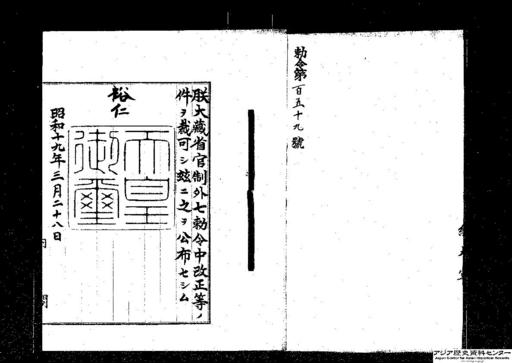 勅令第一百五十九號
朕大藏省官制外七勅令中改正等ノ
件ヲ裁可シ玆ニ之ヲ公布セシム
裕仁
天皇御璽
昭和十九年三月二十八日
内閣
アジア歴史資料センター
Japan Center for Asian Historical Records